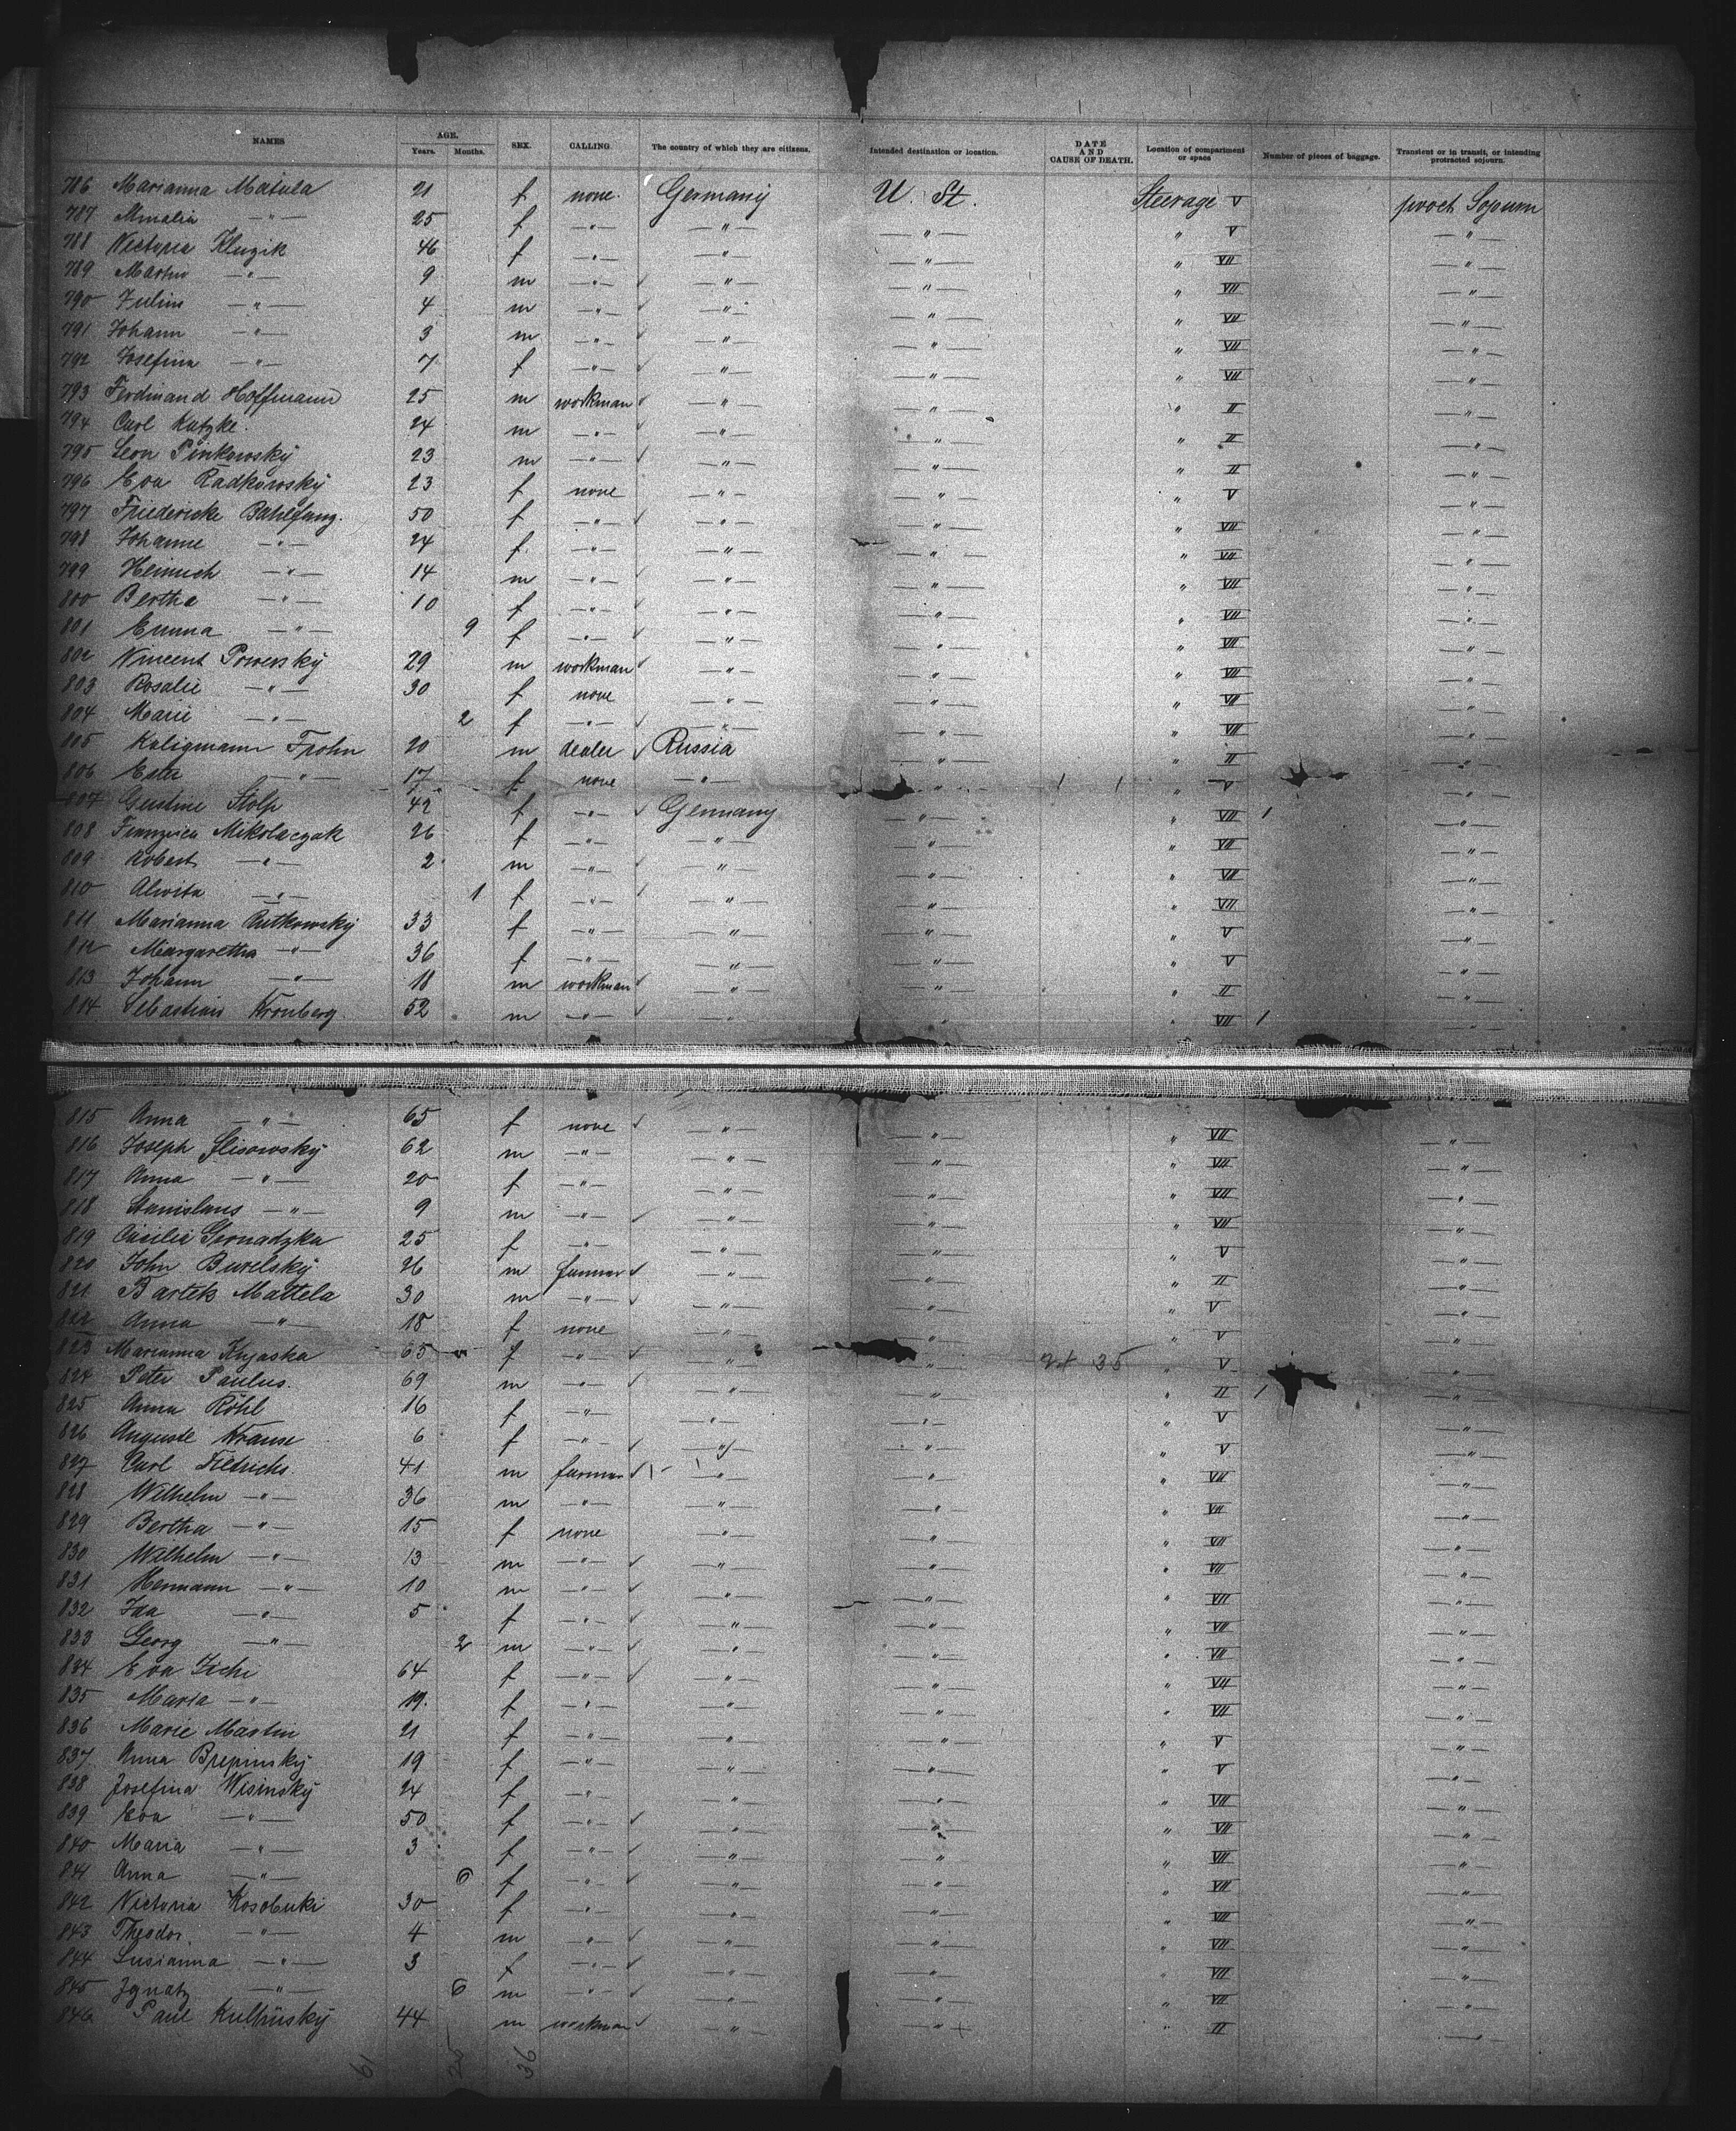 NAMES AGE. Years. Months. SEX. CALLING. The country of which they are citizens. Intended destination or location. DATE AND CAUSE OF DEATH. Location of compartment or space Number of pieces of baggage. Transient or in transit, or intending protracted sojourn.
786 Marianna Matula 21 f none. Germany U. St. Steerage V proct Sojourn
787 —"— 25 f —"— —"— —"— " V —"—
788 Victoria Kluzik 46 f —"— —"— —"— " VII —"—
789 Martin —"— 9 m —"— —"— —"— " VII —"—
790 —"— 4 m —"— —"— —"— " VII —"—
791 Johann —"— 3 m —"— —"— —"— " VII —"—
792 Josefina —"— 7 f —"— —"— —"— " VII —"—
793 Ferdinand Hoffmann 25 m workman —"— —"— " II —"—
794 Carl Katzke. 24 m —"— —"— —"— " II —"—
795 Leon Pinkowsky 23 m —"— —"— —"— " II —"—
796 Eva Radkowsky 23 f none —"— —"— " V —"—
797 Friedericke 50 f —"— —"— —"— " VII —"—
798 Johanne —"— 24 f. —"— —"— —"— " VII —"—
799 Heinrich —"— 14 m —"— —"— —"— " VII —"—
800 Bertha —"— 10 f —"— —"— —"— " VII —"—
801 Emma —"— 9 f —"— —"— —"— " VII —"—
802 Vincent 29 m workman —"— —"— " VII —"—
803 Rosalie —"— 30 f none —"— —"— " VII —"—
804 Marie —"— 2 f —"— —"— —"— " VII —"—
805 20 m dealer Russia —"— " II —"—
806 Ester —"— 17 f none —"— " " V —"—
807 Stolp 42 f —"— Germany —"— " VII 1 —"—
808 Mikolaczak 26 f —"— —"— —"— " VII —"—
809 Robert —"— 2 m —"— —"— —"— " VII —"—
810 —"— 1 f —"— —"— —"— " VII —"—
811 Marianna Rutkowsky 33 f —"— —"— —"— " V —"—
812 Margaretha —"— 36 f —"— —"— —"— " V —"—
813 Johann —"— 18 m workman —"— —"— " II —"—
814 Sebastian Kronberg 52 m —"— " " " VII 1 —"—
815 Anna —"— 65 f none —"— —"— " VII —"—
816 Joseph 62 m —"— —"— —"— " VII —"—
817 Anna —"— 20 f —"— —"— —"— " VII —"—
818 Stanislaus —"— 9 m —"— —"— —"— " VII —"—
819 Cäcilie 25 f —"— —"— —"— " V —"—
820 John Burelsky 26 m farmer —"— —"— " II —"—
821 Bartek Mattela 30 m —"— —"— —"— " V —"—
822 Anna —"— 18 f none —"— —"— " V —"—
823 Marianna 65 f —"— —"— —"— " V —"—
824 Peter Paulus. 69 m —"— —"— —"— " II 1 —"—
825 Anna Röhl 16 f —"— —"— —"— " V —"—
826 Auguste Krause 6 f —"— —"— —"— " V —"—
827 Carl Dietrichs 41 m farmer —"— " VII —"—
828 Wilhelm —"— 36 m —"— —"— —"— " VII —"—
829 Bertha —"— 15 f none —"— —"— " VII —"—
830 Wilhelm —"— 13 m —"— —"— —"— " VII —"—
831 Hermann —"— 10 m —"— —"— —"— " VII —"—
832 Ida —"— 5 f —"— —"— —"— " VII —"—
833 Georg —"— 2 m —"— —"— —"— " VII —"—
834 Eva 64 f —"— —"— —"— " VII —"—
835 Maria —"— 19. f —"— —"— —"— " VII —"—
836 Marie Martin 21 f —"— —"— —"— " V —"—
837 Anna 19 f —"— —"— —"— " V —"—
838 Josefina Wisinsky 24 f —"— —"— —"— " VII —"—
839 Eva —"— 50 f —"— —"— —"— " VII —"—
840 Maria —"— 3 f —"— —"— —"— " VII —"—
841 Anna —"— 6 f —"— —"— —"— " VII —"—
842 Victoria Kosobuki 30 f —"— —"— —"— " VII —"—
843 Theodor. —"— 4 m —"— —"— —"— " VII —"—
844 Susianna —"— 3 f —"— —"— —"— " VII —"—
845 Ignatz —"— 6 m —"— —"— —"— " VII —"—
846 Paul 44 m workman —"— —"— " II —"—